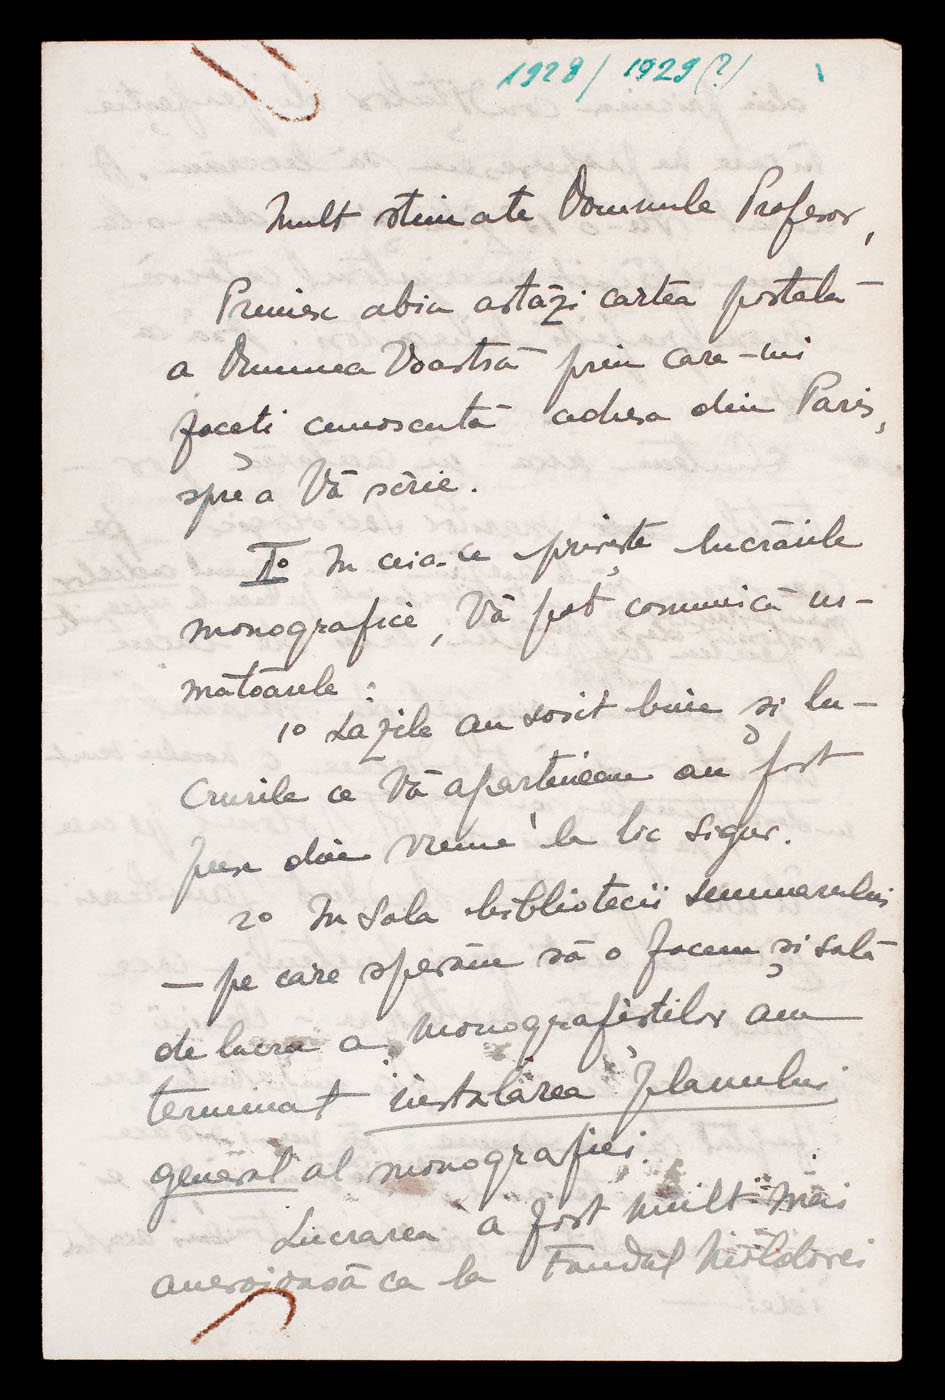 1928/1929(?)
Mult stimate Domnule Profesor,
Primesc abia astăzi cartea poștală
a Dumnea Voastră prin care-mi
faceți cunoscută adresa din Paris,
spre a Vă scrie.
I° În ceia-ce privește lucrările
monografice, Vă pot comunică ur-
mătoarele:
1° Lăzile au sosit bine și lu-
crurile ce Vă aparțineau au fost
puse din vreme la loc sigur.
2° În sala bibliotecii seminarului
— pe care sperăm să o facem și sală
de lucru a monografiștilor am
terminat instalarea planului
general al monografiei.
Lucrarea a fost mult mai
anevoioasă ca la Fundul Moldovei